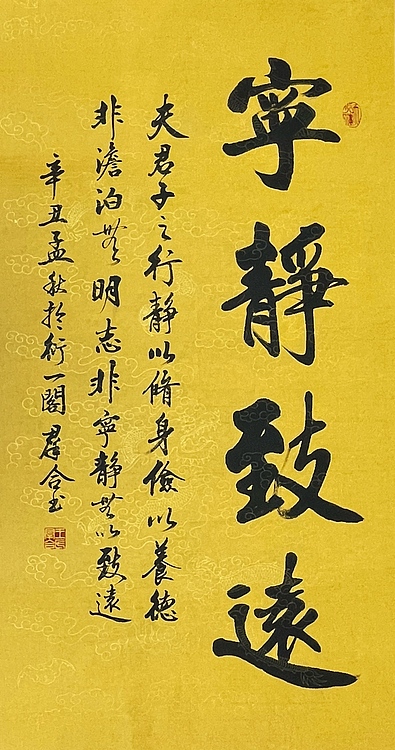 寧靜致遠
夫君子之行靜以脩身儉以養德
非澹泊無以明志非寧靜無以致遠
辛丑孟秋於衍一閣群合书